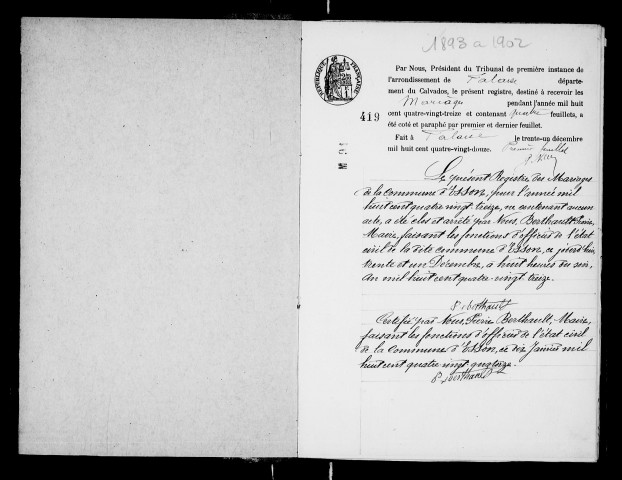 1893 a 1902
RÉPUBLIQUE FRANÇAISE
419
Par Nous, Président du Tribunal de première instance de
l'arrondissement de Falaise départe-
ment du Calvados, le présent registre, destiné à recevoir les
Mariages pendant l'année mil huit
cent quatre-vingt-treize et contenant quatre feuillets, a
été coté et paraphé par premier et dernier feuillet.
Fait à Falaise le trente-un décembre
mil huit cent quatre-vingt-douze. Premier feuillet
Le présent Registre des Mariages
de la commune d'Esson, pour l'année mil
huit cent quatre vingt treize, ne contenant aucun
acte, a été clos et arrêté par Nous, Berthault Pierre,
Maire, faisant les fonctions d'officier de l'état
civil de la dite commune d'Esson, ce jourd'hui
trente et un Décembre, à huit heures du soir,
An mil huit cent quatre-vingt treize.
P. Berthault
Certifié par Nous, Pierre Berthault, Maire,
faisant les fonctions d'officier de l'état civil
de la Commune d'Esson, ce dix Janvier mil
huit cent quatre vingt quatorze.
P. Berthault